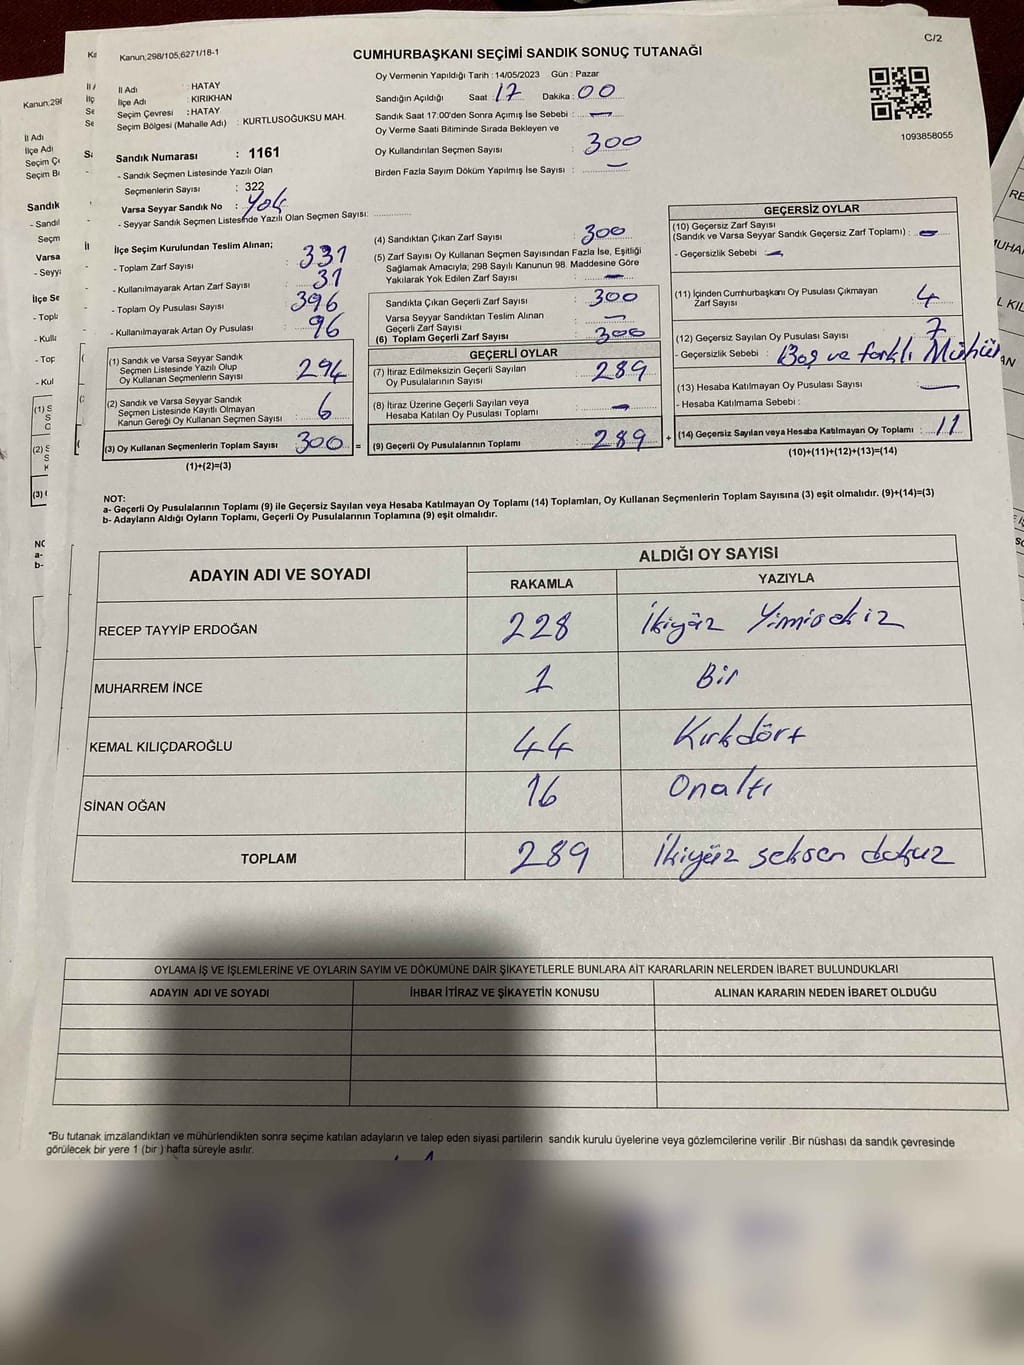 C/2
Kanun,298/105,6271/18-1
CUMHURBAŞKANI SEÇİMİ SANDIK SONUÇ TUTANAĞI
1093858055
İl Adı : HATAY
İlçe Adı : KIRIKHAN
Seçim Çevresi : HATAY
Seçim Bölgesi (Mahalle Adı) : KURTLUSOĞUKSU MAH.
Sandık Numarası : 1161
- Sandık Seçmen Listesinde Yazılı Olan
Seçmenlerin Sayısı : 322
Varsa Seyyar Sandık No : Yok
- Seyyar Sandık Seçmen Listesinde Yazılı Olan Seçmen Sayısı:
Oy Vermenin Yapıldığı Tarih : 14/05/2023 Gün : Pazar
Sandığın Açıldığı Saat : 17 Dakika : 00
Sandık Saat 17.00'den Sonra Açımış İse Sebebi : —
Oy Verme Saati Bitiminde Sırada Bekleyen ve
Oy Kullandırılan Seçmen Sayısı : 300
Birden Fazla Sayım Döküm Yapılmış İse Sayısı : —
İlçe Seçim Kurulundan Teslim Alınan;
- Toplam Zarf Sayısı : 331
- Kullanılmayarak Artan Zarf Sayısı : 31
- Toplam Oy Pusulası Sayısı : 396
- Kullanılmayarak Artan Oy Pusulası : 96
(1) Sandık ve Varsa Seyyar Sandık
Seçmen Listesinde Yazılı Olup
Oy Kullanan Seçmenlerin Sayısı : 294
(2) Sandık ve Varsa Seyyar Sandık
Seçmen Listesinde Kayıtlı Olmayan
Kanun Gereği Oy Kullanan Seçmen Sayısı : 6
(3) Oy Kullanan Seçmenlerin Toplam Sayısı : 300 =
(1)+(2)=(3)
(4) Sandıktan Çıkan Zarf Sayısı : 300
(5) Zarf Sayısı Oy Kullanan Seçmen Sayısından Fazla İse, Eşitliği
Sağlamak Amacıyla, 298 Sayılı Kanunun 98. Maddesine Göre
Yakılarak Yok Edilen Zarf Sayısı : —
Sandıkta Çıkan Geçerli Zarf Sayısı : 300
Varsa Seyyar Sandıktan Teslim Alınan
Geçerli Zarf Sayısı : —
(6) Toplam Geçerli Zarf Sayısı : 300
GEÇERLİ OYLAR
(7) İtiraz Edilmeksizin Geçerli Sayılan
Oy Pusulalarının Sayısı : 289
(8) İtiraz Üzerine Geçerli Sayılan veya
Hesaba Katılan Oy Pusulası Toplamı : —
(9) Geçerli Oy Pusulalarının Toplamı : 289 +
GEÇERSİZ OYLAR
(10) Geçersiz Zarf Sayısı
(Sandık ve Varsa Seyyar Sandık Geçersiz Zarf Toplamı) : —
- Geçersizlik Sebebi : —
(11) İçinden Cumhurbaşkanı Oy Pusulası Çıkmayan
Zarf Sayısı : 4
(12) Geçersiz Sayılan Oy Pusulası Sayısı : 7
- Geçersizlik Sebebi : Boş ve farklı Mühür
(13) Hesaba Katılmayan Oy Pusulası Sayısı : —
- Hesaba Katılmama Sebebi :
(14) Geçersiz Sayılan veya Hesaba Katılmayan Oy Toplamı : 11
(10)+(11)+(12)+(13)=(14)
NOT:
a- Geçerli Oy Pusulalarının Toplamı (9) ile Geçersiz Sayılan veya Hesaba Katılmayan Oy Toplamı (14) Toplamları, Oy Kullanan Seçmenlerin Toplam Sayısına (3) eşit olmalıdır. (9)+(14)=(3)
b- Adayların Aldığı Oyların Toplamı, Geçerli Oy Pusulalarının Toplamına (9) eşit olmalıdır.
ADAYIN ADI VE SOYADI ALDIĞI OY SAYISI
RAKAMLA YAZIYLA
RECEP TAYYİP ERDOĞAN 228 İkiyüz Yimisekiz
MUHARREM İNCE 1 Bir
KEMAL KILIÇDAROĞLU 44 Kırkdört
SİNAN OĞAN 16 Onaltı
TOPLAM 289 İkiyüz seksen dokuz
OYLAMA İŞ VE İŞLEMLERİNE VE OYLARIN SAYIM VE DÖKÜMÜNE DAİR ŞİKAYETLERLE BUNLARA AİT KARARLARIN NELERDEN İBARET BULUNDUKLARI
ADAYIN ADI VE SOYADI İHBAR İTİRAZ VE ŞİKAYETİN KONUSU ALINAN KARARIN NEDEN İBARET OLDUĞU
*Bu tutanak imzalandıktan ve mühürlendikten sonra seçime katılan adayların ve talep eden siyasi partilerin sandık kurulu üyelerine veya gözlemcilerine verilir .Bir nüshası da sandık çevresinde
görülecek bir yere 1 (bir ) hafta süreyle asılır.